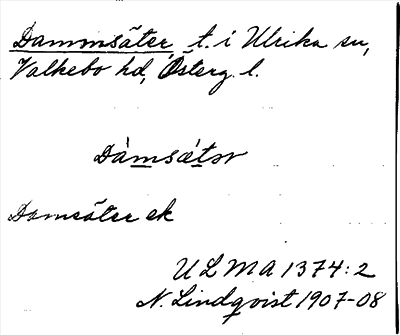 Dammsäter t. i Ulrika sn,
Valkebo hd, Österg. l.
Dàmsǽtər
Damsäter ek
ULMA 1374:2
N. Lindqvist 1907-08